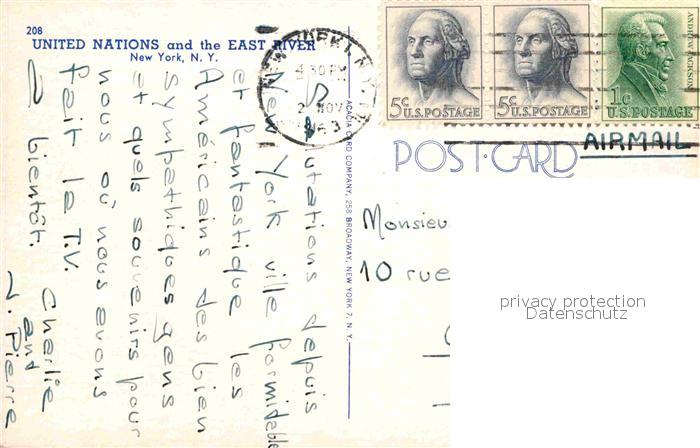 208
UNITED NATIONS and the EAST RIVER
New York, N. Y.
NEW YORK, N.Y.
4 30 PM
2 NOV
5c U.S. POSTAGE
5c U.S. POSTAGE
ANDREW JACKSON
1c U.S. POSTAGE
AIRMAIL
POST-CARD
ACACIA CARD COMPANY, 258 BROADWAY, NEW YORK 7, N. Y.
Salutations depuis
New York ville formidable
et fantastique les
Américains des bien
sympathiques gens
et quels souvenirs pour
nous où nous avons
fait la T.V.
à bientôt.
Charlie
and
J. Pierre
Monsieu
10 rue
privacy protection
Datenschutz